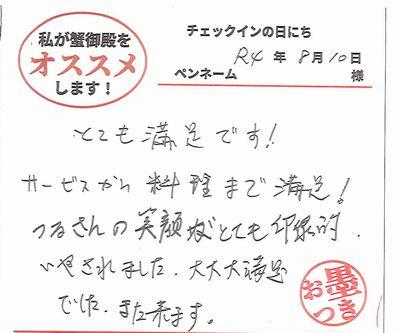 私が蟹御殿を
オススメ
します!
チェックインの日にち
R4年8月10日
ペンネーム 様
とても満足です!!
サービスから料理まで満足!
つるさんの笑顔がとても印象的.
いやされました.大大大満足
でした.また来ます。
お墨つき